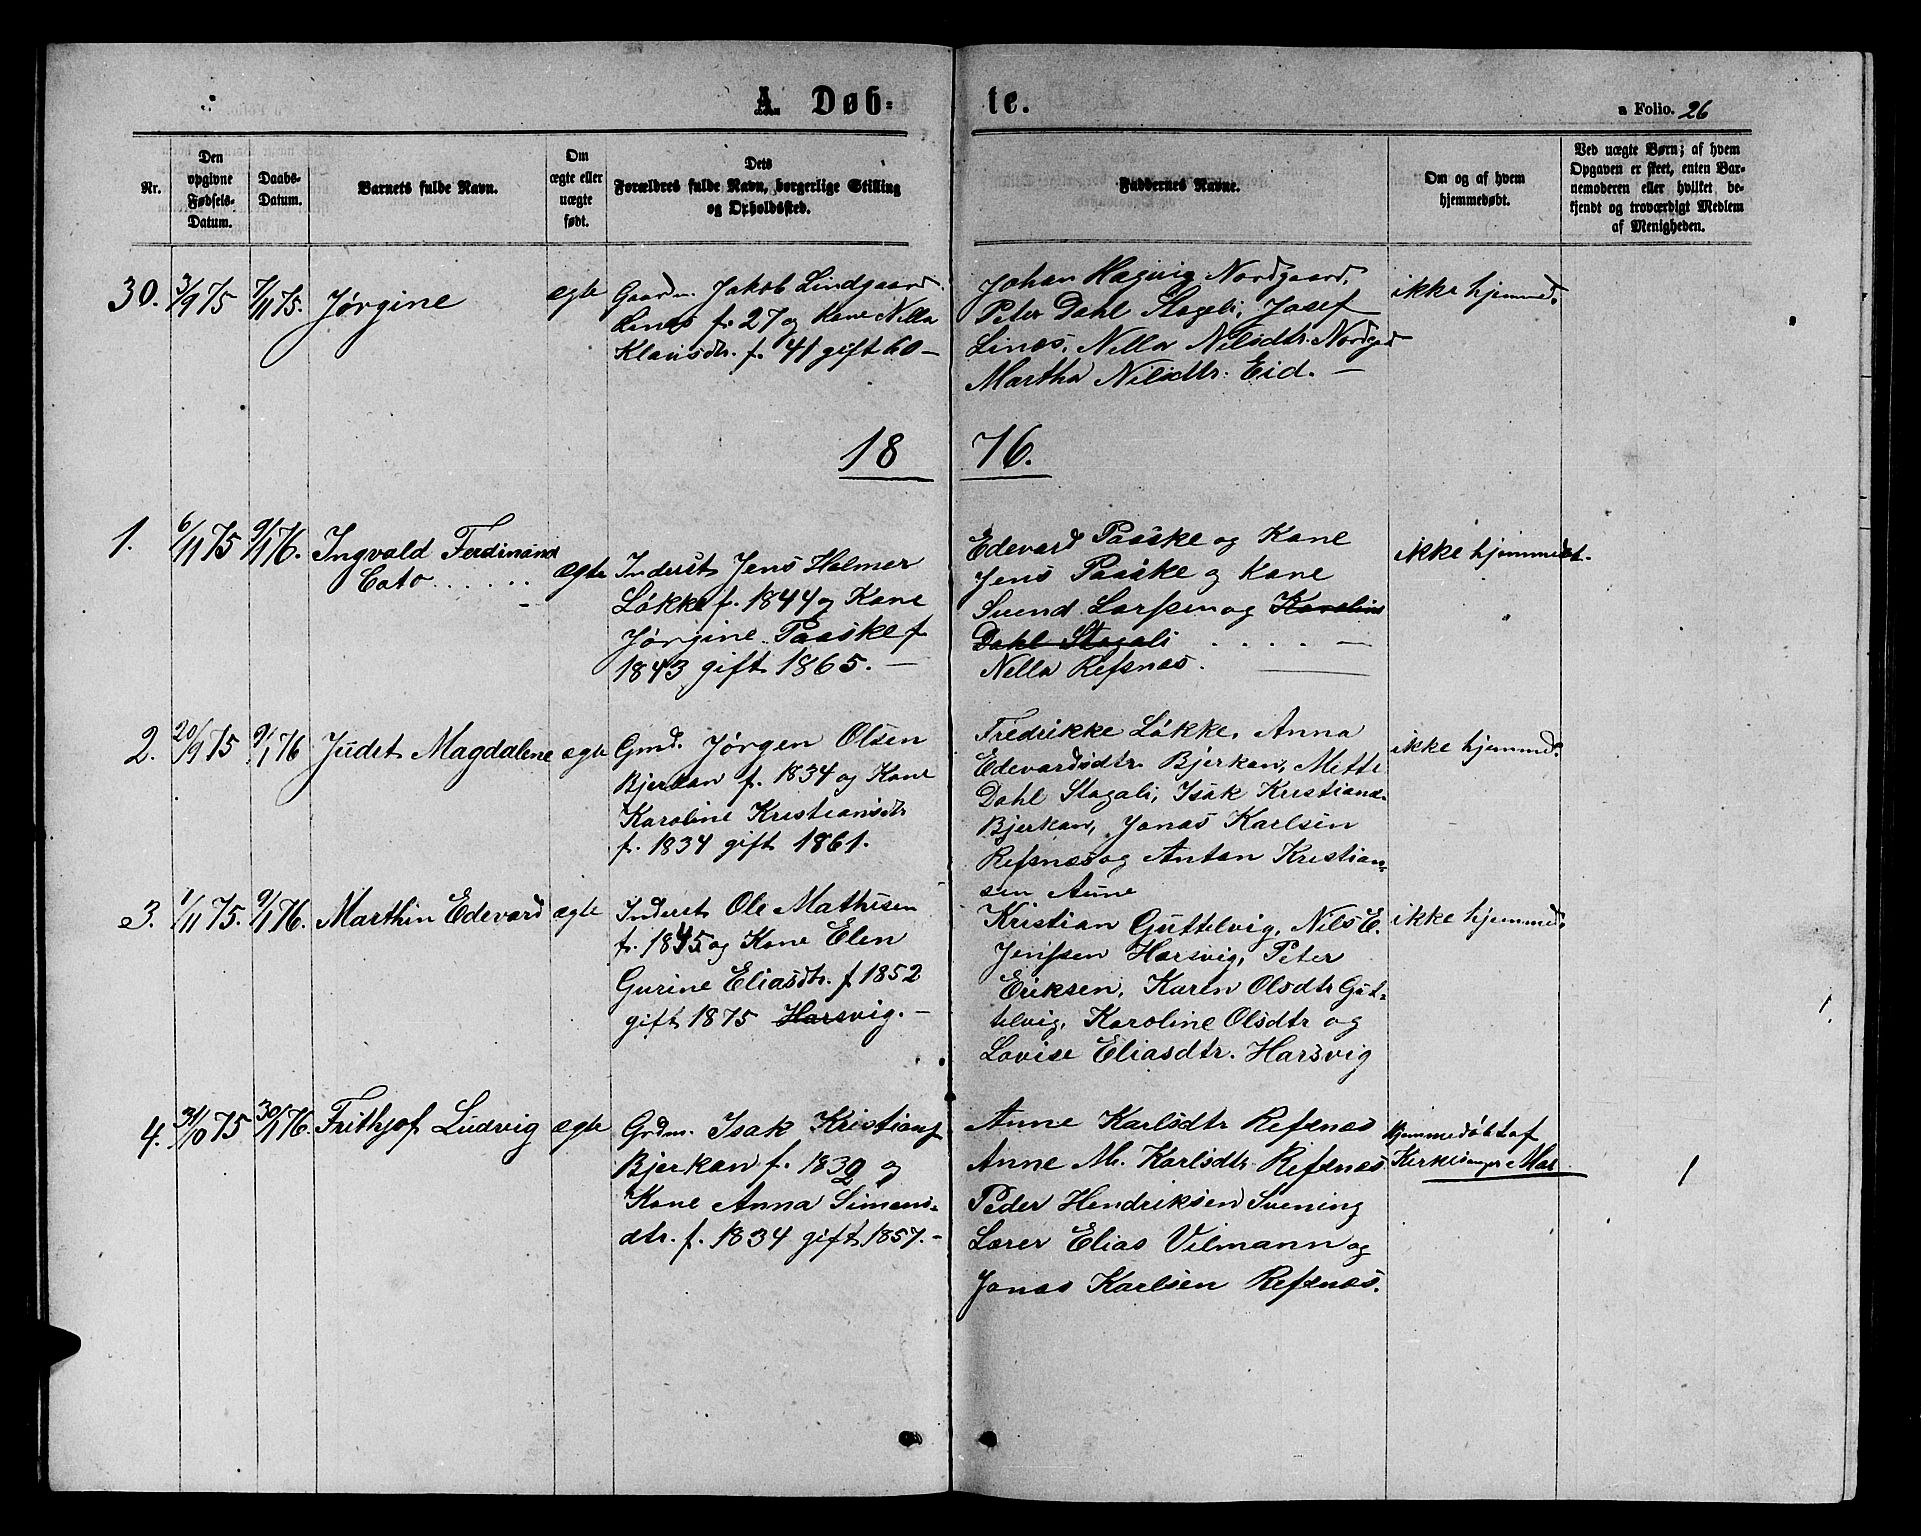 A. Døb- te.
a Folio. 26
Nr.
Den opgivne Fødsels-Datum.
Daabs-Datum.
Barnets fulde Navn.
Om ægte eller uægte født.
Dets Forældres fulde Navn, borgerlige Stilling og Opholdssted.
Faddernes Navne.
Om og af hvem hjemmedøbt.
Ved uægte Børn; af hvem Opgaven er skeet, enten Barnemoderen eller hvilket bekjendt og troværdigt Medlem af Menigheden.
30. 3/9 75 7/11 75. Jørgine ægte
Gaardm. Jakob Lindgaard
Linæs f. 27 og Kone Nella
Klausdtr. f. 41 gift 60 —
Johan Hagvig Nordgaard,
Peter Dahl Stageli, Josef
Linæs, Nella Nilsdtr. Nordgrd
Martha Nilsdtr. Eid. —
ikke hjemmed.
18 76.
1. 6/11 75 9/1 76. Ingvald Ferdinand
Coto . . . . . -
ægte
Inderst Jens Holmer
Løkke f. 1844 og Kone
Jørgine Paaske f
1843 gift 1865. —
Edevard Paaske og Kone
Jens Paaske og Kone
Svend Larssen og Karoline
Dahl Stagali . . . . —
Nella Refsnæs.
ikke hjemmedøbt.
2. 20/9 75 9/1 76 Judet Magdalene ægte
Gmd. Jørgen Olsen
Bjerkan f. 1834 og Kone
Karoline Kristiansdtr
f. 1834 gift 1861.
Fredrikke Løkke, Anna
Edevardsdtr Bjerkan, Mette
Dahl Stagali, Isak Kristians.
Bjerkan, Jonas Karlsen
Refsnæs og Anton Kristian-
sen Aune
ikke hjemmed.
3. 1/11 75. 9/1 76. Marthin Edevard ægte
Inderst Ole Mathisen
f. 1845 og Kone Elen
Gurine Eliasdtr. f 1852
gift 1875 Harsvig. —
Kristian Guttelvig, Nils E.
Jenssen Harsvig, Peter
Eriksen, Karen Olsdtr Gut-
telvig, Karoline Olsdtr og
Lovise Eliasdtr. Harsvig
ikke hjemmed.
4. 31/10 75 30/1 76. Frithjof Ludvig ægte
Grdm. Isak Kristians
Bjerkan f. 1832 og
Kone Anna Simons-
dtr. f. 1834 gift 1857. -
Anne Karlsdtr Refsnæs
Anne M. Karlsdtr. Refsnæs
Peder Hendriksen Svening
Lærer Elias Vilmann og
Jonas Karlsen Refsnæs.
hjemmedøbt af
Kirkesanger
1